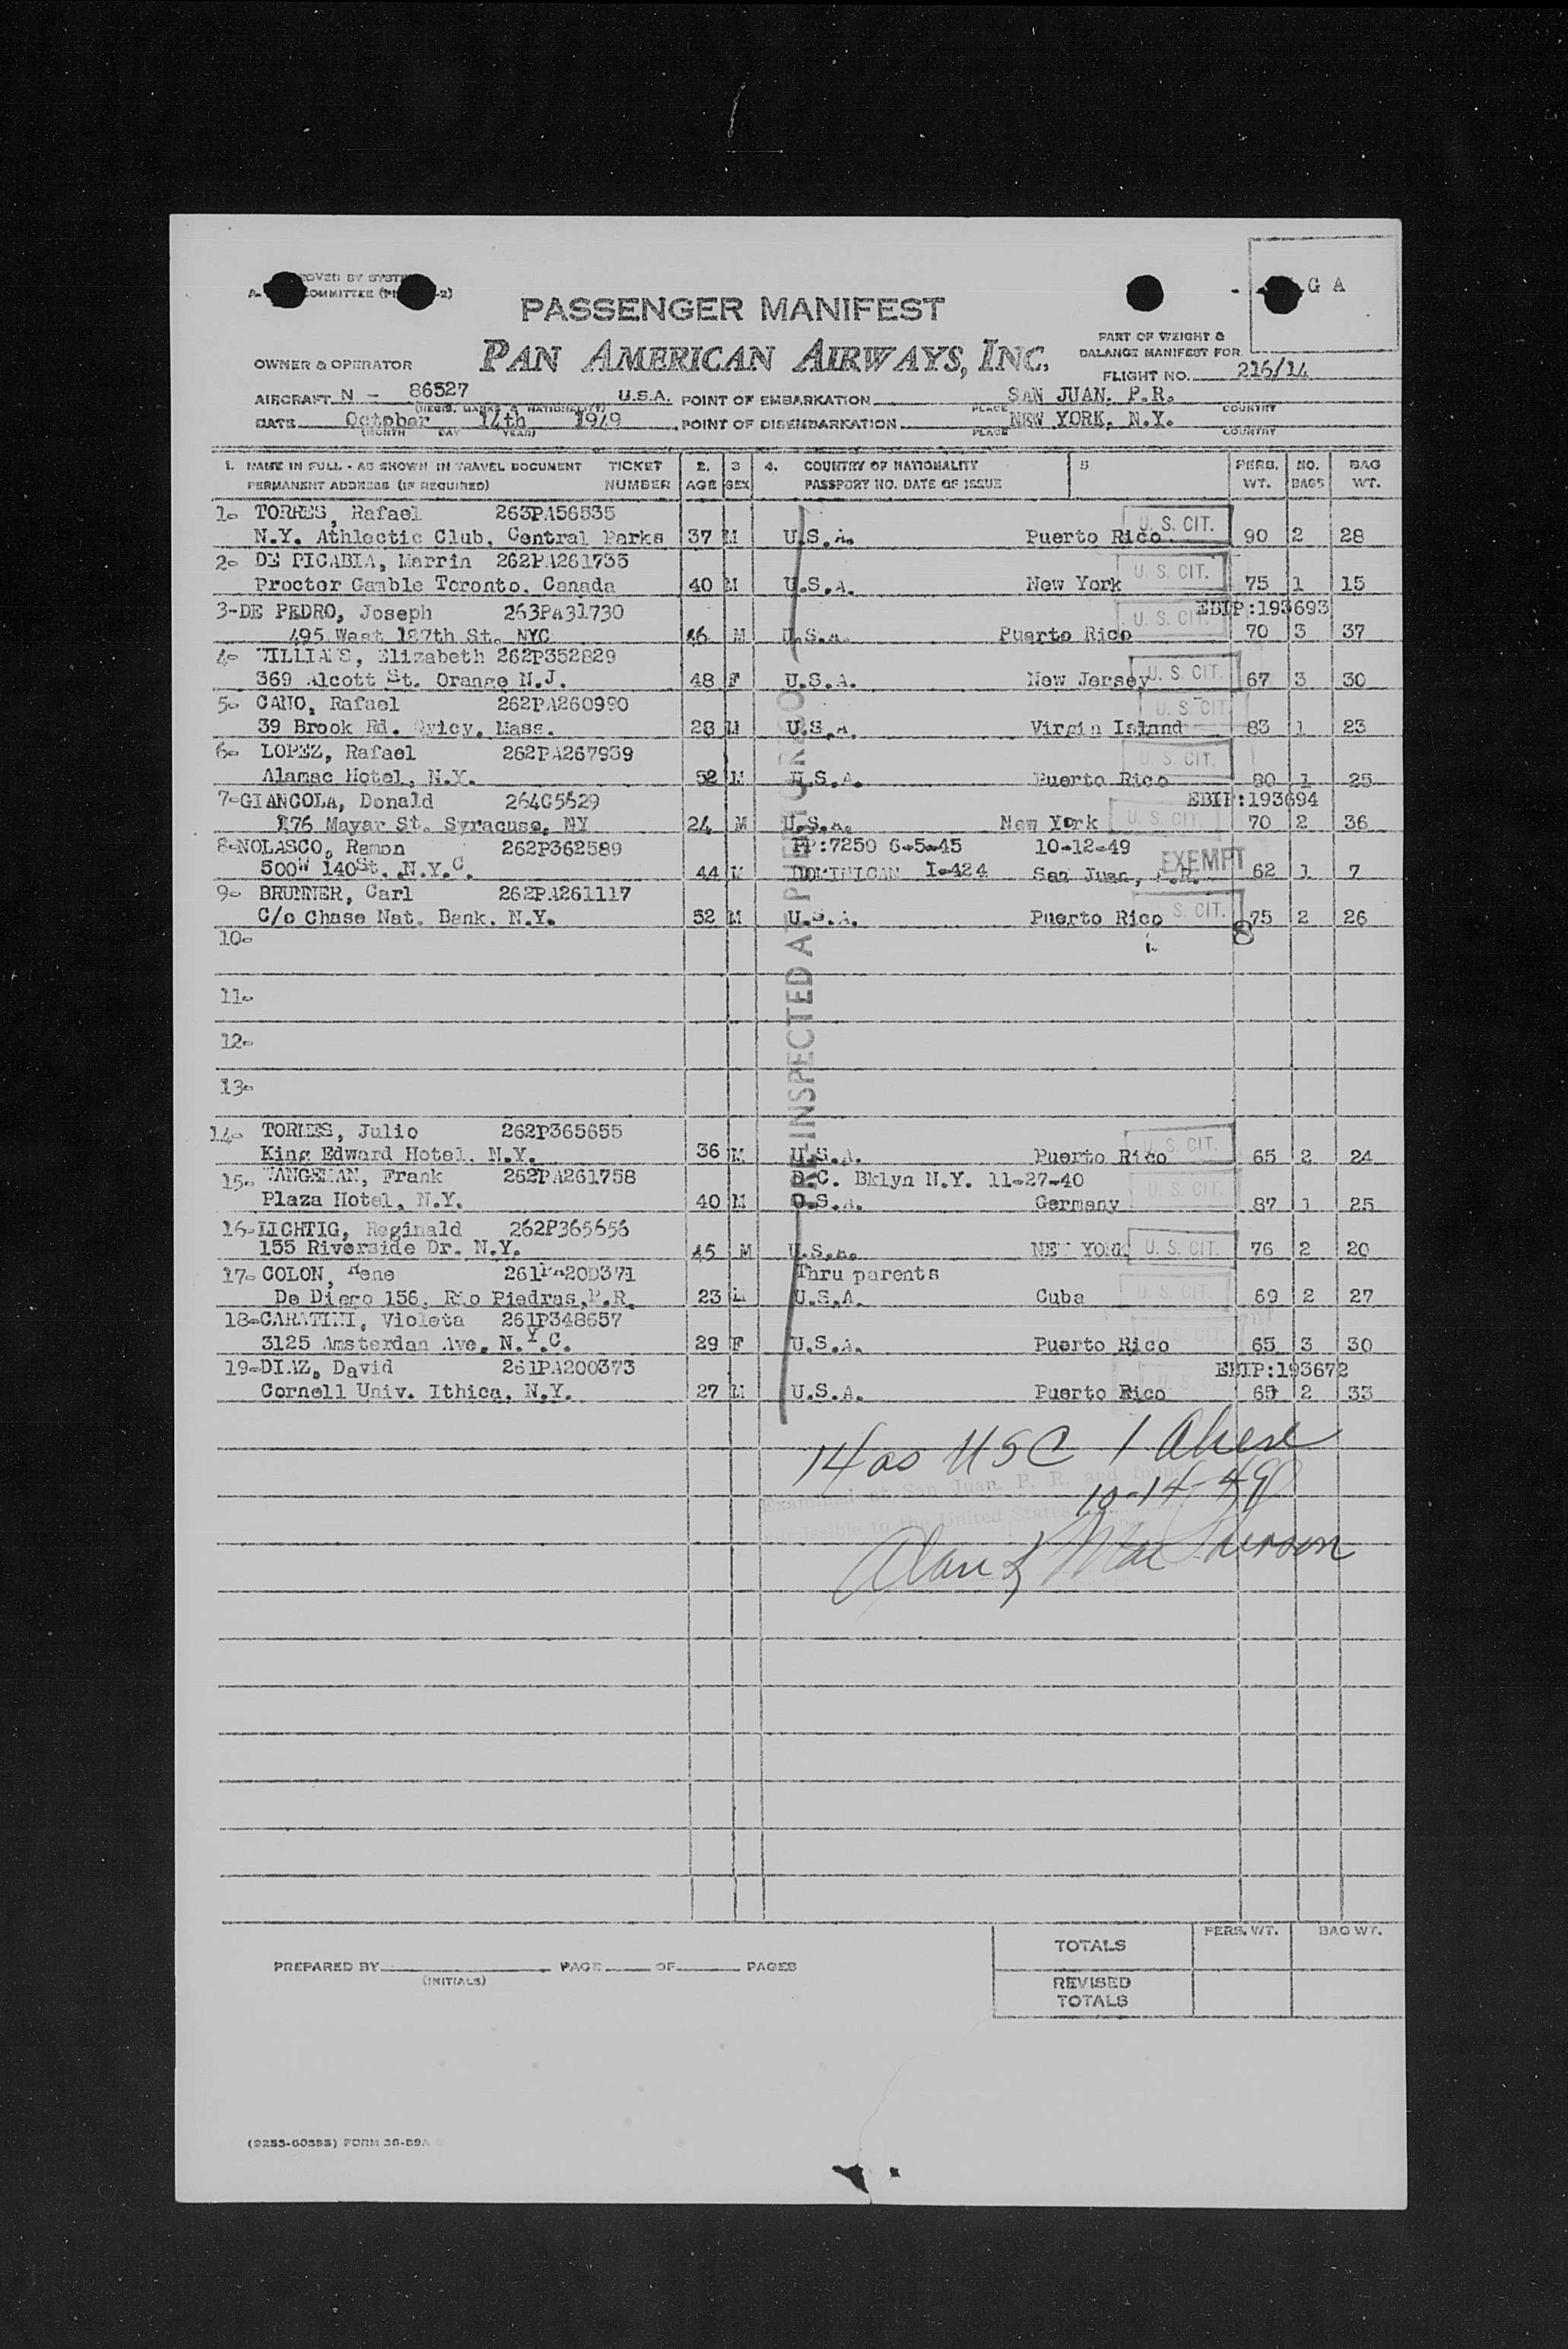 PASSENGER MANIFEST
PAN AMERICAN AIRWAYS, INC.
G A
OWNER & OPERATOR
PART OF WEIGHT &
BALANCE MANIFEST FOR
FLIGHT NO. 216/14
AIRCRAFT N - 86527 U.S.A. POINT OF EMBARKATION SAN JUAN. P.R.
(REGIS. MARKS & NATIONALITY) PLACE COUNTRY
DATE October 14th 1949 POINT OF DISEMBARKATION NEW YORK, N.Y.
(MONTH DAY YEAR) PLACE COUNTRY
1. NAME IN FULL - AS SHOWN IN TRAVEL DOCUMENT TICKET 2. 3 4. COUNTRY OF NATIONALITY 5 PERS. NO. BAG
PERMANENT ADDRESS (IF REQUIRED) NUMBER AGE SEX PASSPORT NO. DATE OF ISSUE WT. BAGS WT.
1- TORRES, Rafael 263PA56535 U. S. CIT.
N.Y. Athlectic Club, Central Parks 37 M U.S.A. Puerto Rico 90 2 28
2- DE PICABIA, Marrin 262PA261735 U. S. CIT.
Proctor Gamble Toronto, Canada 40 M U.S.A. New York 75 1 15
3-DE PEDRO, Joseph 263PA31730 U. S. CIT. EBIP:193693
495 West 187th St. NYC M U.S.A. Puerto Rico 70 3 37
4- WILLIAMS, Elizabeth 262P352829 U. S. CIT.
369 Alcott St. Orange N.J. 48 F U.S.A. New Jersey 67 3 30
5- CANO, Rafael 262PA260990 U. S. CIT.
39 Brook Rd. Mass. 28 M U.S.A. Virgin Island 83 1 23
6- LOPEZ, Rafael 262PA267939 U. S. CIT.
Alamac Hotel, N.Y. 52 M U.S.A. Puerto Rico 80 1 25
7-GIANCOLA, Donald 264C5629 EBIP:193694
176 Mayar St. Syracuse, NY 24 M U.S.A. New York U. S. CIT. 70 2 36
8-NOLASCO, Ramon 262P362589 PP:7250 6-5-45 10-12-49 EXEMPT
500W 140St. .N.Y.C. 44 M DOMINICAN I-424 San Juan, P.R. 62 1 7
9- BRUNNER, Carl 262PA261117 U. S. CIT.
C/o Chase Nat. Bank. N.Y. 52 M U.S.A. Puerto Rico 75 2 26
10- 8
11-
12-
13-
14- TORRES, Julio 262P365655 U. S. CIT.
King Edward Hotel, N.Y. 36 M U.S.A. Puerto Rico 65 2 24
15- WANGEMAN, Frank 262PA261758 D.C. Bklyn N.Y. 11-27-40 U. S. CIT.
Plaza Hotel, N.Y. 40 M U.S.A. Germany 87 1 25
16-LICHTIG, Reginald 262P365656
155 Riverside Dr. N.Y. 45 M U.S.A. NEW YORK U. S. CIT. 76 2 20
17- COLON, Rene Thru parents U. S. CIT.
De Diego 156, Rio Piedras,P.R. 23 M U.S.A. Cuba 69 2 27
18-CARATINI, Violeta 261P348657 U. S. CIT.
3125 Amsterdan Ave. N.Y.C. 29 F U.S.A. Puerto Rico 65 3 30
19-DIAZ, David 261PA200373 EBIP:193672
Cornell Univ. Ithica, N.Y. 27 M U.S.A. Puerto Rico 65 2 33
INSPECTED
14 as USC 1
10-14-49
Examined at San Juan, P. R. and found
admissible to the United States
PREPARED BY PAGE OF PAGES
(INITIALS)
PERS. WT. BAG WT.
TOTALS
REVISED
TOTALS